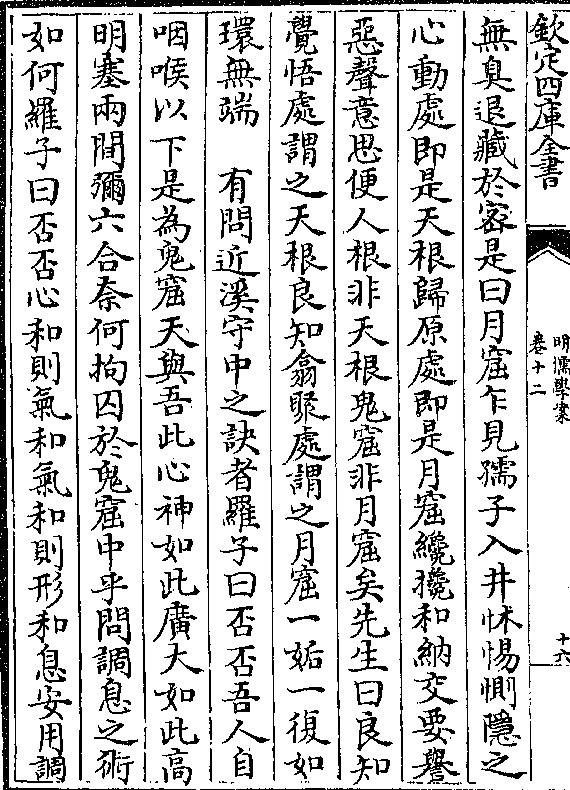 欽定四庫全書
明儒學案
卷十二
十六
無臭退藏於宻是曰月窟乍見孺子入井怵惕惻隱之
心動處即是天根歸原處即是月窟纔攙和納交要譽
惡聲意思便人根非天根鬼窟非月窟矣先生曰良知
覺悟處謂之天根良知翕聚處謂之月窟一姤一復如
環無端　有問近溪守中之訣者羅子曰否否吾人自
咽喉以下是為鬼窟天與吾此心神如此廣大如此高
明塞兩間彌六合奈何拘囚於鬼窟中乎問調息之術
如何羅子曰否否心和則氣和氣和則形和息安用調